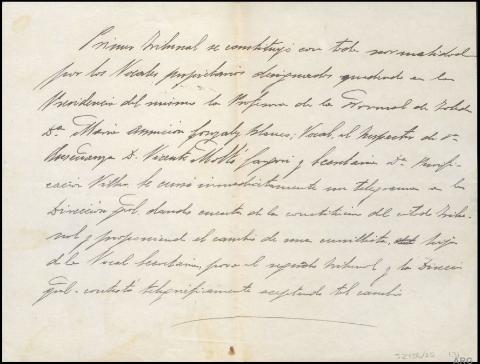 Primer Tribunal se constituyó con toda normalidad
por los Vocales propietarios designados quedando en la
Presidencia del mismo la Profesora de la Normal de Toledo
Dª María Asunción González Blanco; Vocal, el Inspector de 1ª
Enseñanza D. Vicente y Secretaria Dª Purifi-
cación Se cursó inmediatamente un telegrama a la
Dirección Gral. dando cuenta de la constitución del citado Tribu-
nal y proponiendo el cambio de una hija
de la Vocal Secretaria, para el segundo tribunal y la Direcci
Gral. contestó telegráficamente aceptando tal cambio